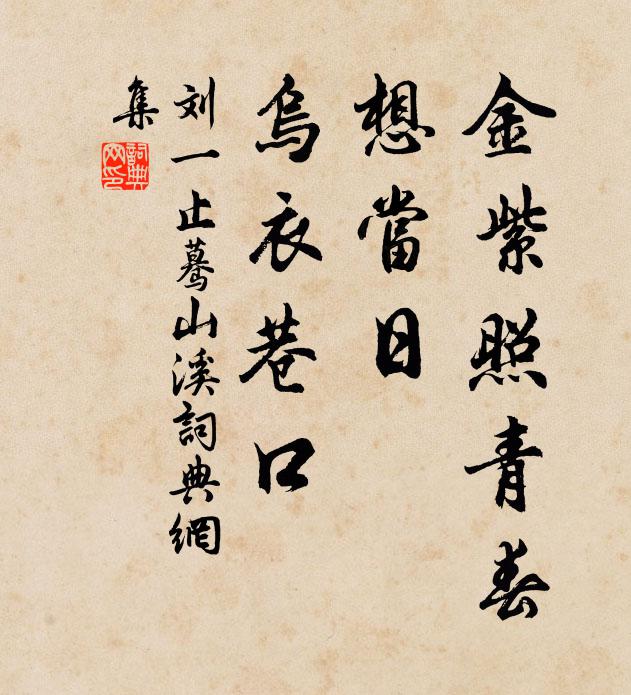 金紫照青春
想當日
烏衣巷口
刘一止驀山溪詞典網
集
詞典
网印